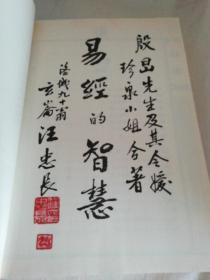 殷昷先生及其令媛
珍泉小姐合著
易經的智慧
洛城九十翁
玄崙汪忠長